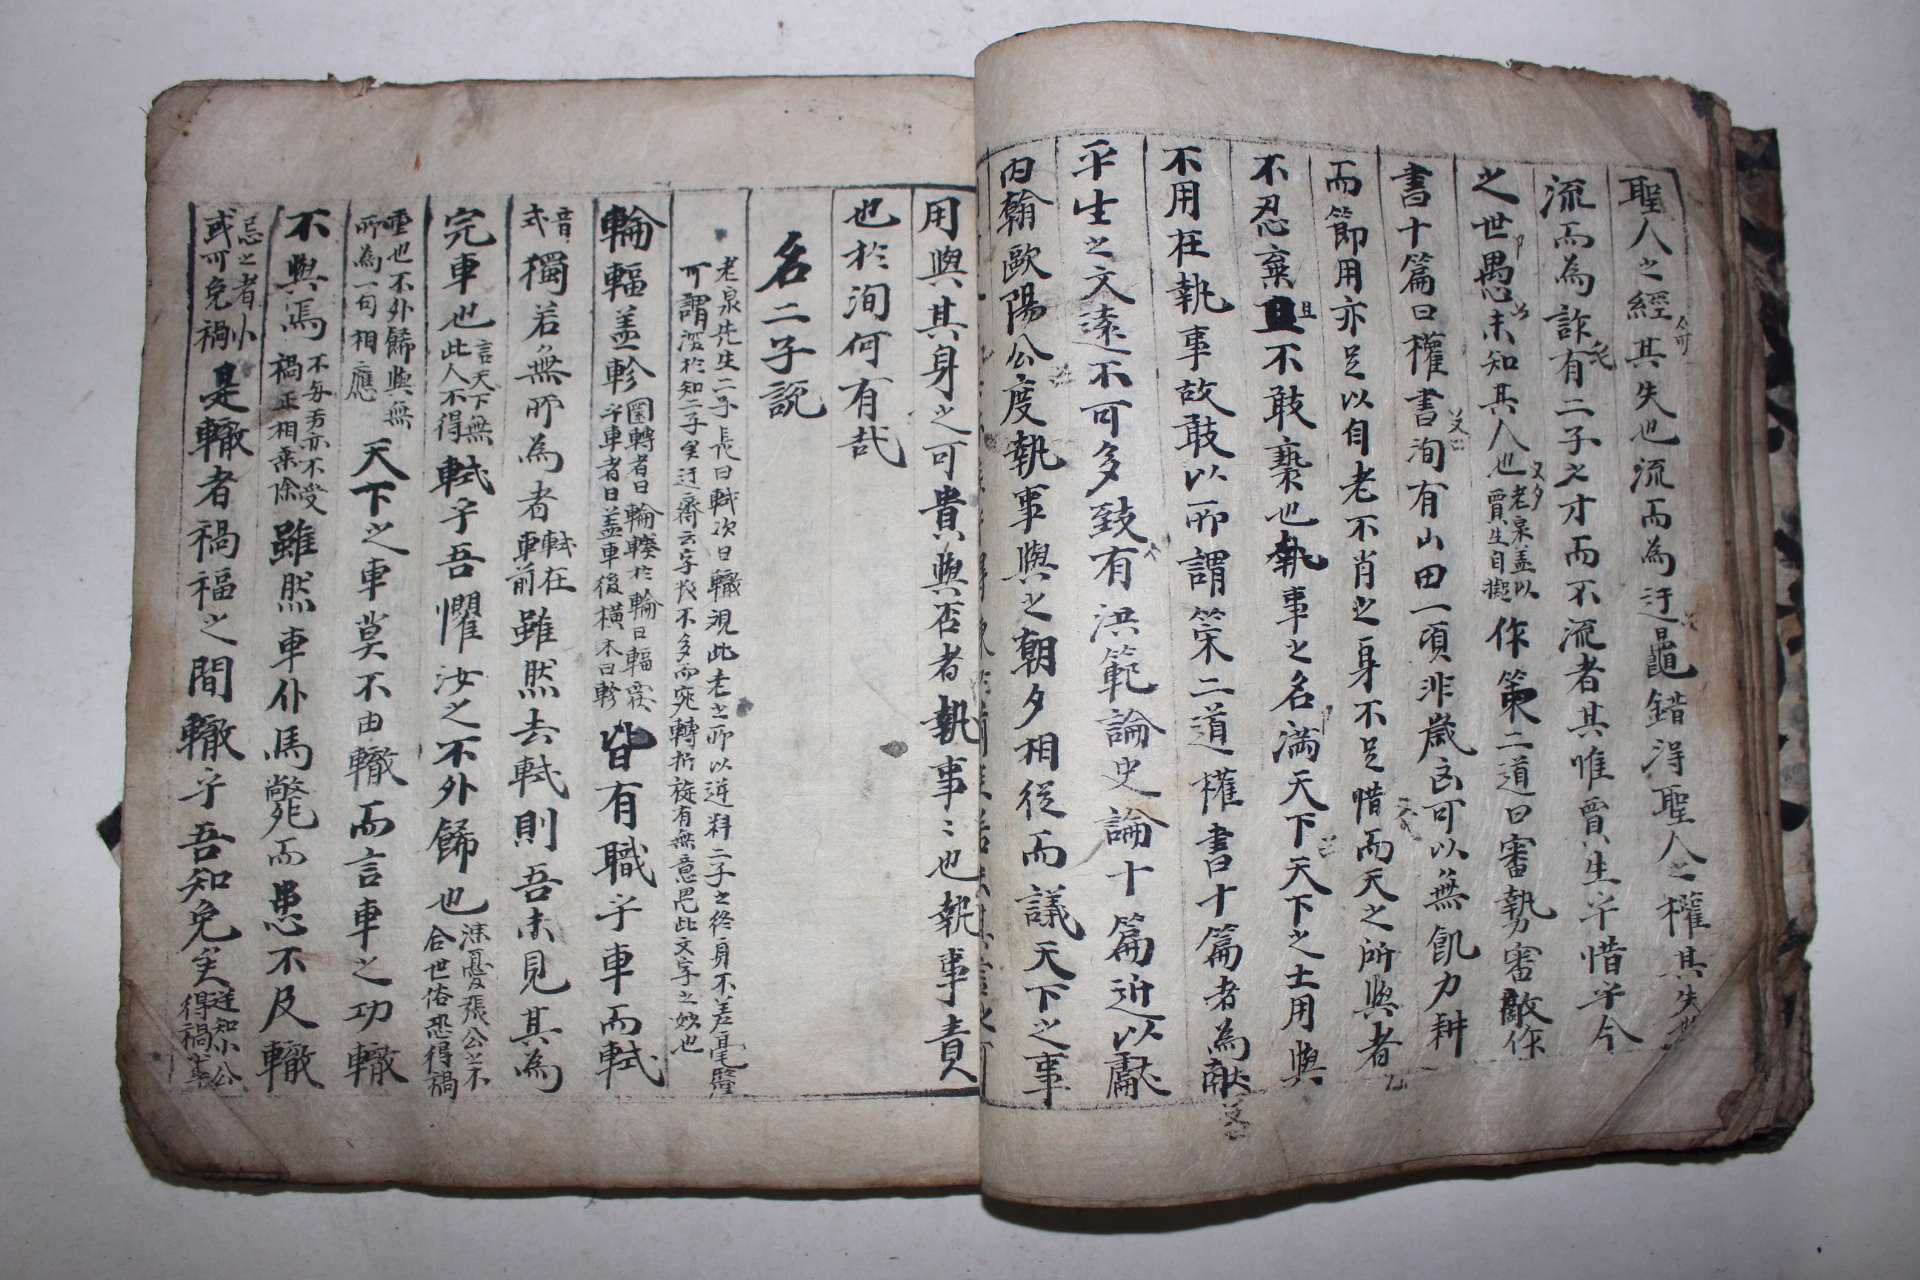 聖人之經其失也流而為迂鼂錯得聖人之權其失也
流而為詐有二子之才而不流者其唯賈生乎惜乎今
之世愚未知其人也
老泉盖以
賈生自擬
作策二道曰審勢審敵作
書十篇曰權書洵有山田一頃非歲凶可以無飢力耕
而節用亦足以自老不肖之身不足惜而天之所與者
不忍棄且不敢褻也執事之名滿天下天下之士用與
不用在執事故敢以所謂策二道權書十篇者為献
平生之文遠不可多致有洪範論史論十篇近以獻
內翰歐陽公度執事與之朝夕相從而議天下之事
用與其身之可貴與否者執事事也執事責
也於洵何有哉
名二子說
老泉先生二子長曰軾次曰轍視此老之所以逆料二子之終身不差毫釐
可謂深於知二子矣迂齋云字數不多而宛轉折旋有無意思此文字之妙也
輪輻盖軫
圜轉者曰輪輳於輪曰輻霂
乎車者曰盖車後橫木曰軫
皆有職乎車而軾
音
式
獨若無所為者
軾在
車前
雖然去軾則吾未見其為
完車也
言天下無
此人不得
軾乎吾懼汝之不外餙也
深憂張公之不
合世俗恐得禍
重也不外餙與無
所為一句相應
天下之車莫不由轍而言車之功轍
不與焉
不每另亦不受
禍正相乘除
雖然車仆馬斃而患不及轍
忌之者小
或可免禍
是轍者禍福之間轍乎吾知免矣
逆知小公
得禍